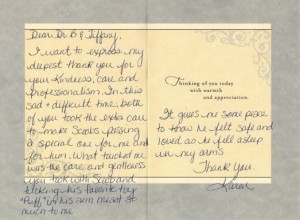 Dear Dr. B & Tiffany,
I want to express my
deepest thank you for
your kindness, care and
professionalism. In this
sad & difficult time, both
of you took the extra care
to make Scoobs passing
a special one for me and
for him. What touched me
was the care and gentleness
you took with Scoob and
tucking his favorite toy
"Puff" in his arm meant so
much to me
Thinking of you today
with warmth
and appreciation.
It gives me some peace
to know he felt safe and
loved as he fell asleep
in my arms.
Thank You